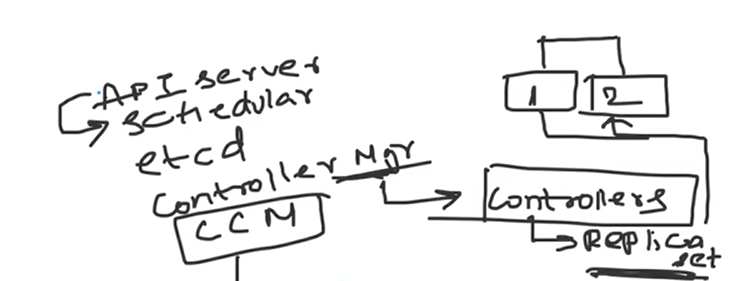 API server
schedular
etcd
controller Mgr
CCM
1 2
controllers
Replica
set